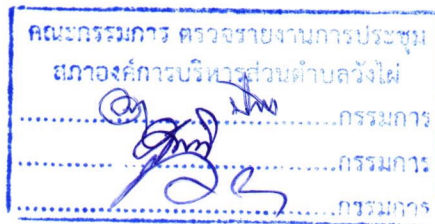 คณะกรรมการ ตรวจรายงานการประชุม
สภาองค์การบริหารส่วนตำบลวังไผ่
กรรมการ
กรรมการ
กรรมการ